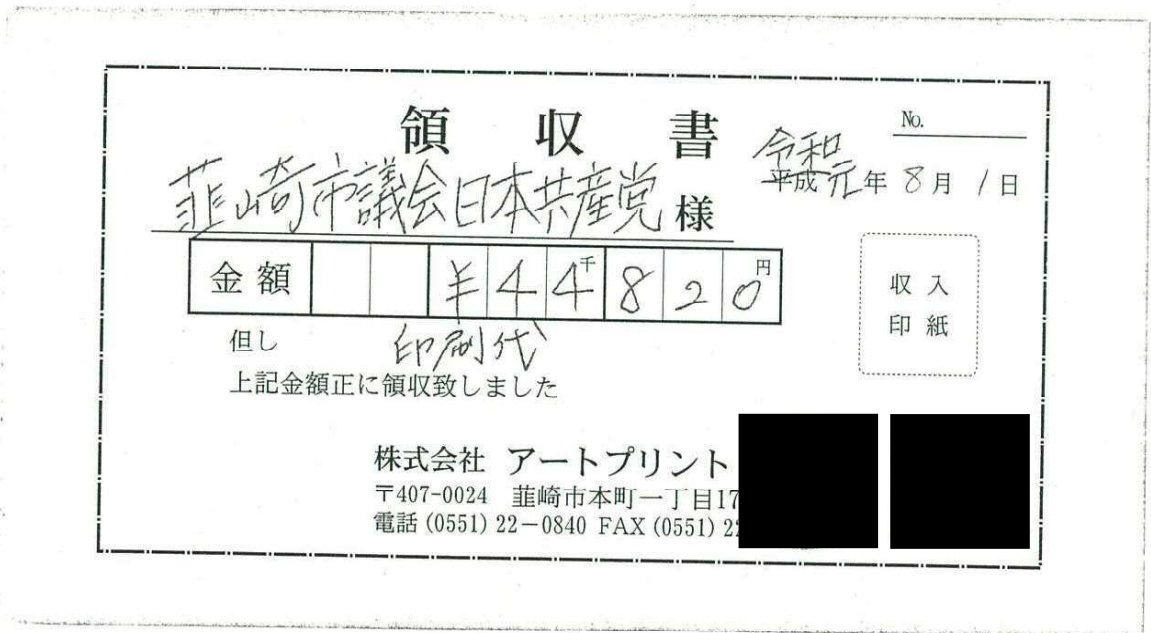 領収書
No.
令和
平成元年8月1日
韮崎市議会日本共産党様
金額 ¥44千820円
収入
印紙
但し 印刷代
上記金額正に領収致しました
株式会社 アートプリント
〒407-0024 韮崎市本町一丁目17
電話(0551)22-0840 FAX(0551)22